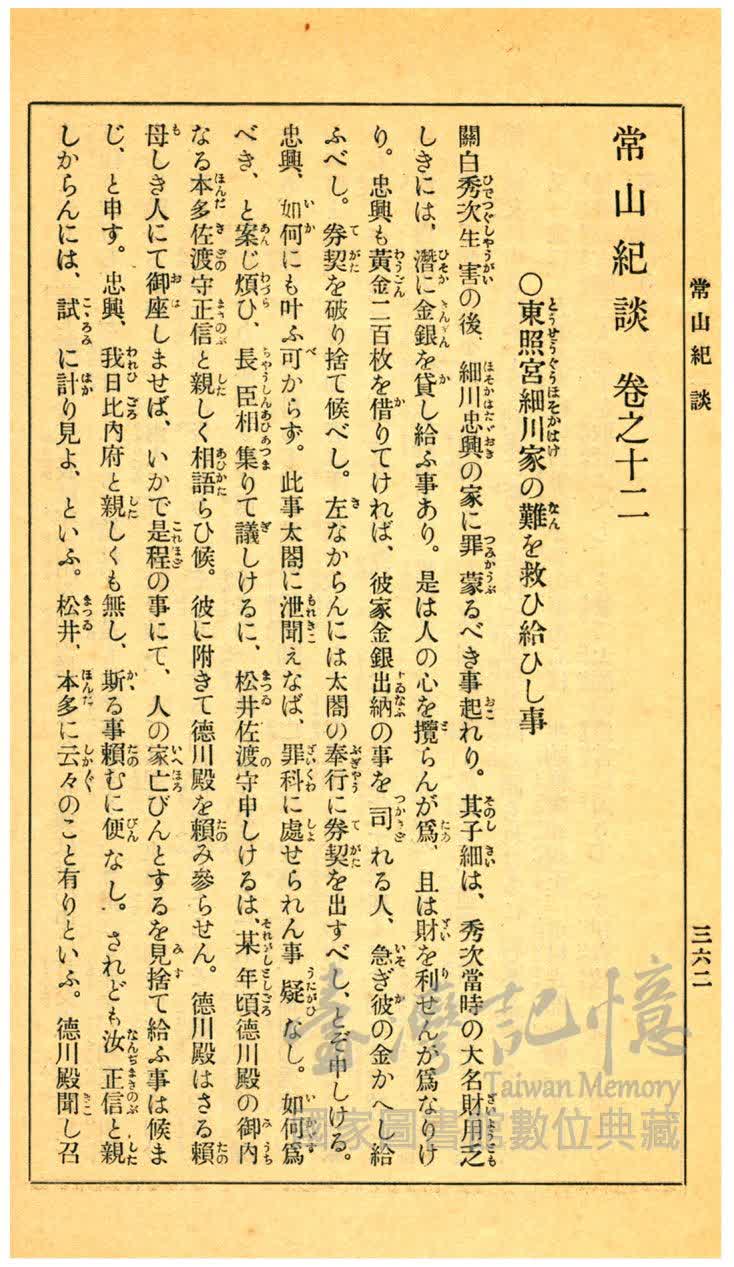 常山紀談
三六二
常山紀談 卷之十二
○東照宮細川家の難を救ひ給ひし事
關白秀次生害の後、細川忠興の家に罪蒙るべき事起れり。其子細は、秀次當時の大名財用乏
しきには、潛に金銀を貸し給ふ事あり。是は人の心を攬らんが爲、且は財を利せんが爲なりけ
り。忠興も黃金二百枚を借りてければ、彼家金銀出納の事を司れる人、急ぎ彼の金かへし給
ふべし。券契を破り捨て候べし。左なからんには太閤の奉行に券契を出すべし、とぞ申しける。
忠興、如何にも叶ふ可からず。此事太閤に泄聞えなば、罪科に處せられん事疑なし。如何爲
べき、と案じ煩ひ、長臣相集りて議しけるに、松井佐渡守申しけるは、某年頃德川殿の御內
なる本多佐渡守正信と親しく相語らひ候。彼に附きて德川殿を賴み參らせん。德川殿はさる賴
母しき人にて御座しませば、いかで是程の事にて、人の家亡びんとするを見捨て給ふ事は候ま
じ、と申す。忠興、我日比內府と親しくも無し、斯る事賴むに便なし。されども汝正信と親
しからんには、試に計り見よ、といふ。松井、本多に云々のこと有りといふ。德川殿聞し召
臺灣記憶
Taiwan Memory
國家圖書館數位典藏